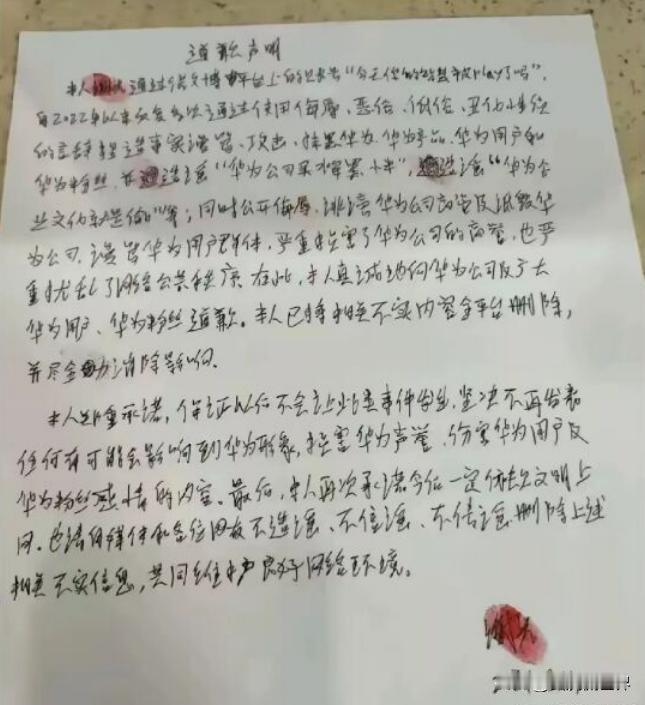 道歉声明
本人通过微博平台上的账号“今天你的智慧平板play了吗”，
自2022年以来反复多次通过使用侮辱、恶俗、低俗、丑化性质
的言辞捏造事实诋毁、攻击、抹黑华为、华为产品、华为用户和
华为粉丝，并造谣“华为公司”，造谣“华为企
业文化就是偷”等；同时公开侮辱、诽谤华为公司高管及诋毁华
为公司，谩骂华为用户群体，严重损害了华为公司的商誉，也严
重扰乱了网络公共秩序。在此，本人真诚地向华为公司及广大
华为用户、华为粉丝道歉。本人已将相关不实内容全平台删除，
并尽全力消除影响。
本人郑重承诺，保证以后不会让此类事件发生，坚决不再发布
任何有可能会影响到华为形象，损害华为声誉，伤害华为用户及
华为粉丝感情的内容。最后，本人再次承诺今后一定依法文明上
网。也请自媒体和各位网友不造谣、不信谣、不传谣，删除上述
相关不实信息，共同维护良好网络环境。